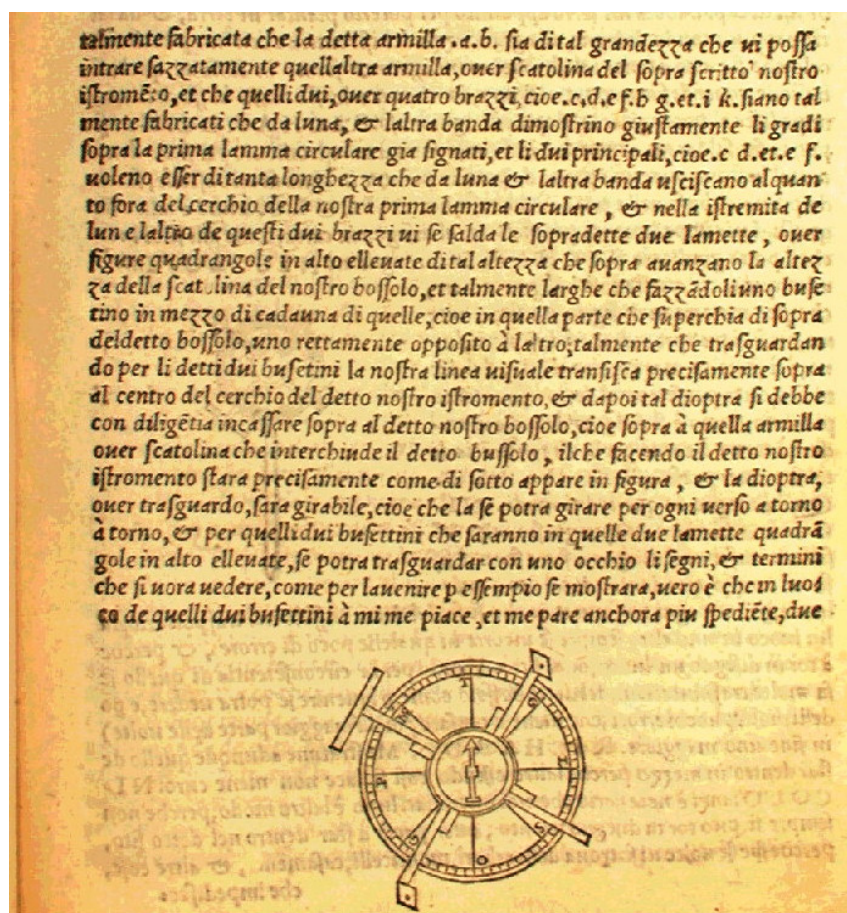 talmente fabricata che la detta armilla .a.b. sia di tal grandezza che ui possa
intrare sazzatamente quellaltra armilla, ouer scatolina del sopra scritto nostro
istromẽto, et che quelli dui, ouer quatro brazzi, cioe .c.d,e f.h g.et.i k. siano tal
mente fabricati che da luna, & laltra banda dimostrino giustamente li gradi
sopra la prima lamma circulare gia signati, et li dui principali, cioe .c d.et.e f.
uoleno esser di tanta longhezza che da luna & laltra banda usciscano alquan
to fora del cerchio della nostra prima lamma circulare, & nella istremita de
lun e laltro de questi dui brazzi ui se salda le sopradette due lamette, ouer
figure quadrangole in alto elleuate di tal altezza che sopra auanzano la altez
za della scatolina del nostro bossolo, et talmente larghe che fazzãdoli uno buse
tino in mezzo di cadauna di quelle, cioe in quella parte che superchia di sopra
del detto bossolo, uno rettamente opposito à laltro, talmente che trasguardan
do per li detti dui busetini la nostra linea uisuale transisca precisamente sopra
al centro del cerchio del detto nostro istromento, & dapoi tal dioptra si debbe
con diligẽtia incassare sopra al detto nostro bossolo, cioe sopra à quella armilla
ouer scatolina che interchiude il detto bussolo, ilche facendo il detto nostro
istromento stara precisamente come di sotto appare in figura, & la dioptra,
ouer trasguardo, sara girabile, cioe che la se potra girare per ogni uerso a torno
à torno, & per quelli dui busettini che saranno in quelle due lamette quadrã
gole in alto elleuate, se potra trasguardar con uno occhio li segni, & termini
che si uora uedere, come per lauenire p essempio se mostrara, uero è che in luo
co de quelli dui busettini à mi me piace, et me pare anchora piu spediẽte, due
T
G
L
S
O
P
M